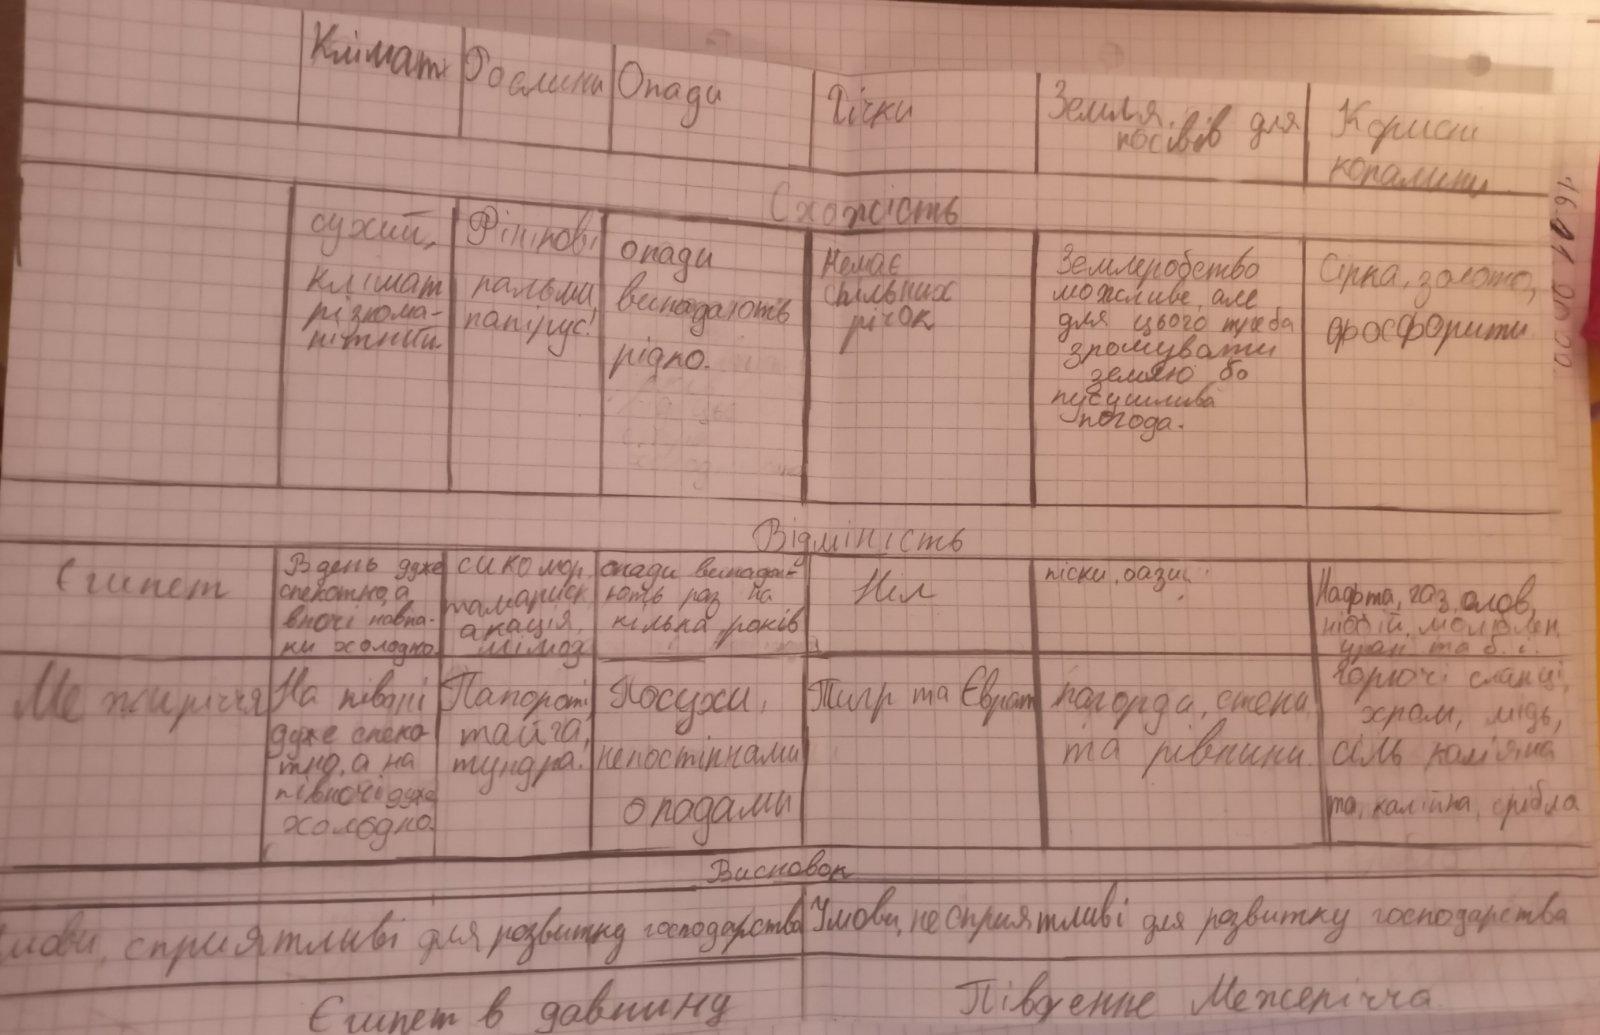 Клімат
Рослини
Опади
Річки
Земля для
посівів
Корисні
копалини
Схожість
сухий,
клімат
різнома-
нітний.
Фінікові
пальми,
папірус.
опади
випадають
рідко.
Немає
спільних
річок
Землеробство
можливе, але
для цього треба
зрошувати
землю бо
посушлива
погода.
Сірка, золото,
фосфорити
Відміність
Єгипет
В день дуже
спекотно, а
вночі навпа-
ки холодно
сикомор,
тамариск,
акація,
мімоз
опади випада-
ють раз на
кілька років
Ніл
піски, оази,
Нафта, газ, олов,
ніобій, молібден,
уран та б. і.
Межиріччя
На півдні
дуже спеко-
тно, а на
півночі дуже
холодно.
Папороті,
тайга,
тундра.
Посухи,
непостійнами
опадами
Тигр та Єврат
пагорда, степи,
та рівнини.
горючі сланці,
хром, мідь,
сіль кам'яна
та, калійна, срібла
Висновок
мови, сприятливі для розвитку господарства
Умови, несприятливі для розвитку господарства
Єгипет в давнину
Південне Межеріччя